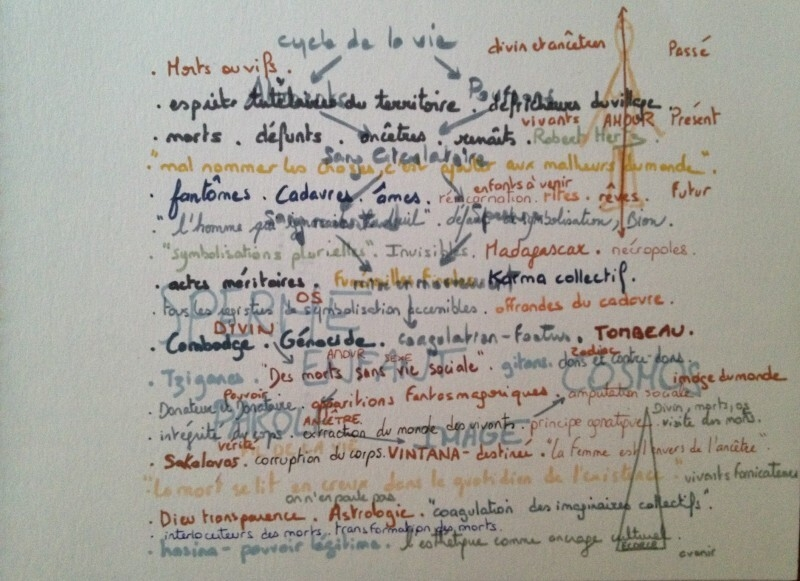 cycle de la vie
divin et ancêtres
Passé
. Morts ou vifs.
. esprits tutélaires du territoire. défricheurs du village.
vivants AMOUR
Présent
. morts. défunts. ancêtres. renaîts. Robert Hertz
Sang Circulatoire
. "mal nommer les choses, c'est ajouter aux malheurs du monde".
enfants à venir
Futur
. fantômes. Cadavres. âmes. réincarnation. rites. rêves.
. "l'homme deuil". symbolisation, Bion.
. "symbolisations plurielles". Invisibles. Madagascar. nécropoles.
. actes méritoires. Funérailles Karma collectif.
. tous les registres de symbolisation accessibles. offrandes du cadavre.
OS
SPERME
DIVIN
. Cambodge. Génocide. coagulation-foetus. TOMBEAU.
AMOUR SEXE
Zodiac
. Tziganes. "Des morts sans vie sociale". gitans. dans et contre dons.
ENFANT
COSMOS
image du monde
Pouvoir
. Donateur et donataire. apparitions fantasmagoriques. amputation sociale
PAROLE
ANCÊTRE.
IMAGE
Divin, morts, os
visite des morts.
. intégrité du corps. extraction du monde des vivants. principe agnatique
vérité
. Sakalavas. corruption du corps. VINTANA- destinée. "la femme est l'envers de l'ancêtre"
. "La mort se lit en creux dans le quotidien de l'existence"
. vivants fornicateurs
on n'en parle pas
. Dieu transparence. Astrologie. "coagulation des imaginaires collectifs".
. interlocuteurs des morts. transformation des morts.
. hasina- pouvoir légitime. l'esthétique comme ancrage culturel
avenir